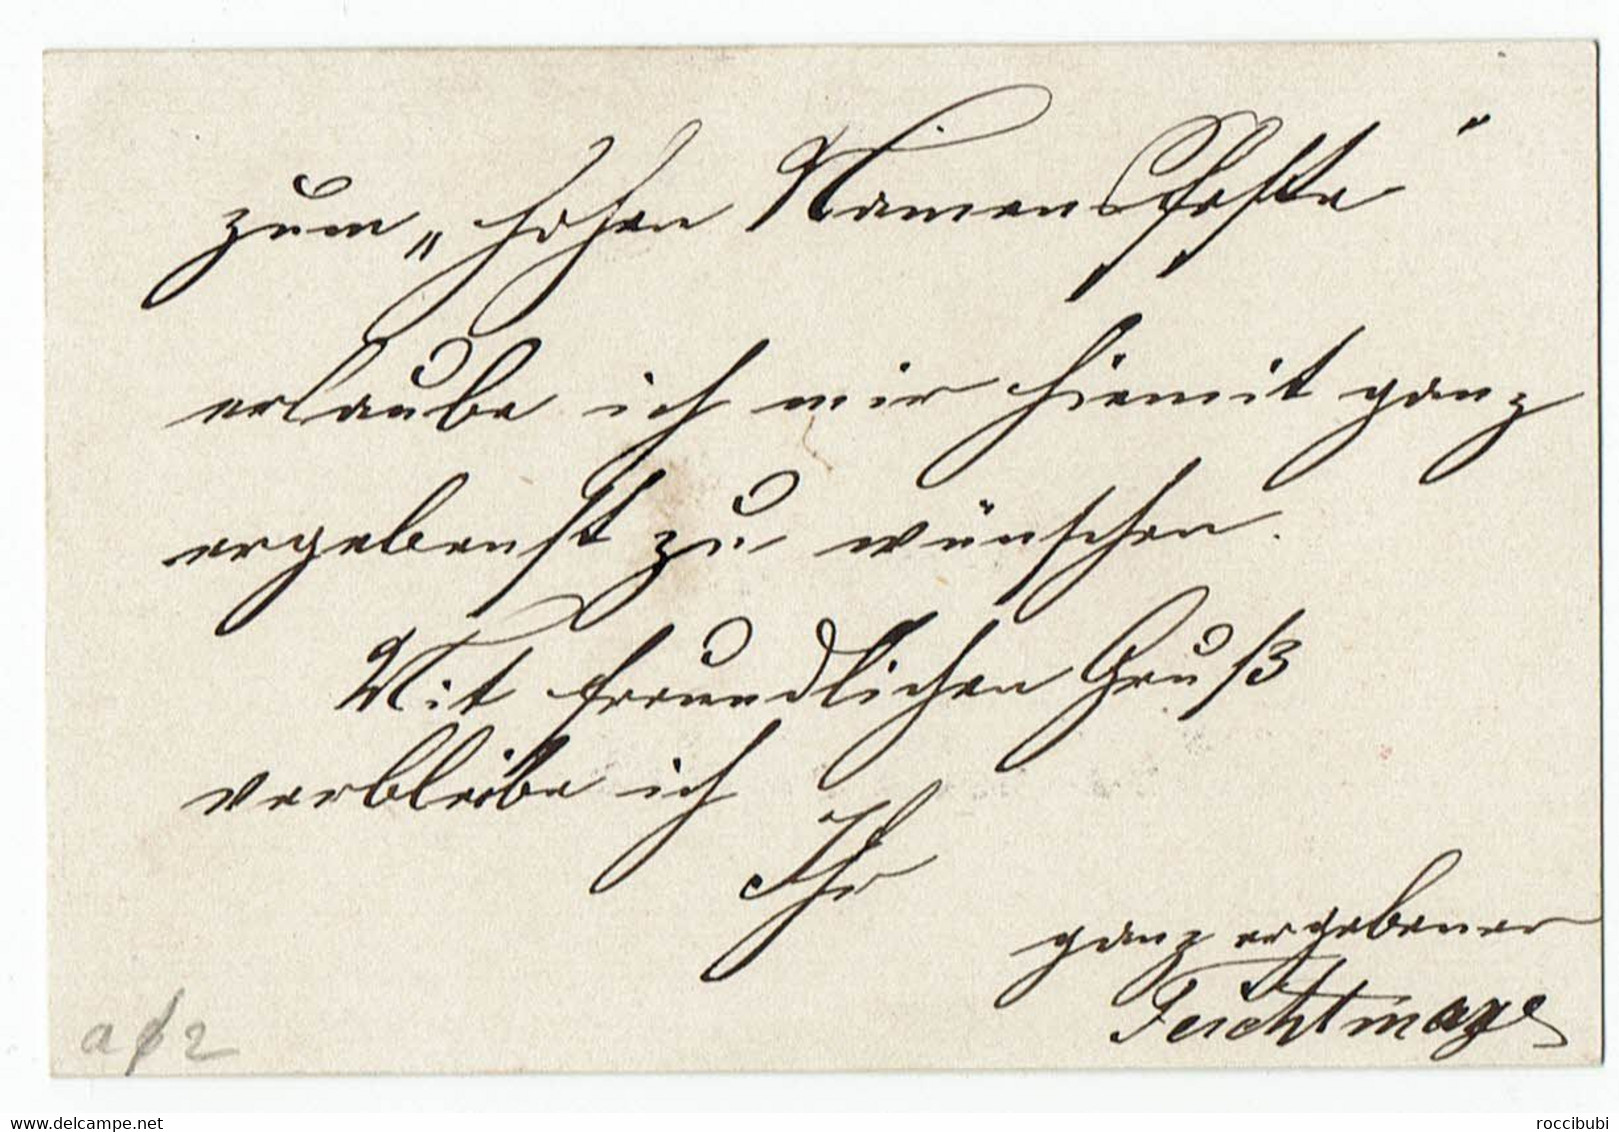 zum „hohen Namensfeste"
erlaube ich mir hiemit ganz
ergebenst zu wünschen.
Mit freundlichen Gruß
verbleibe ich
Ihr
ganz ergebener
Feichtmayr
a 2
www.delcampe.net
roccibubi